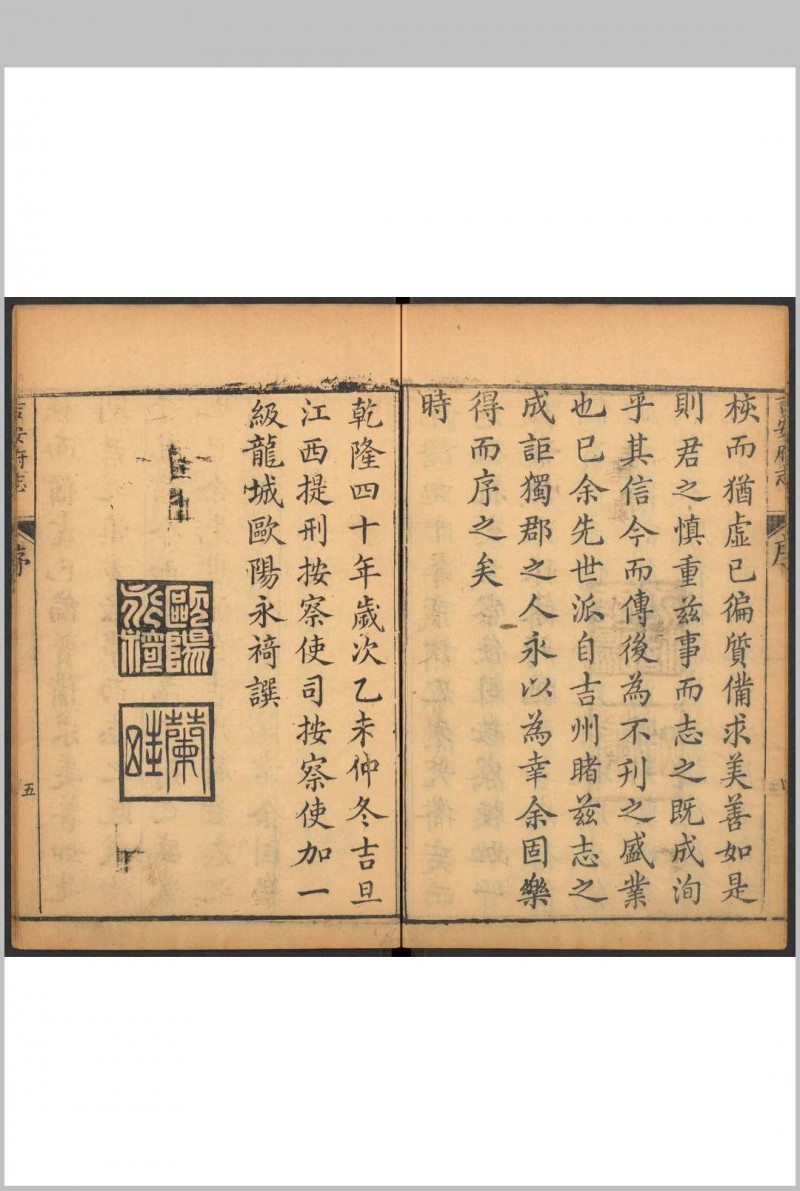 吉安府志
序
核而猶虛已徧質備求美善如是
則君之慎重兹事而志之既成洵
乎其信今而傳後為不刊之盛業
也已余先世派自吉州睹兹志之
成詎獨郡之人永以為幸余固樂
得而序之矣
時
乾隆四十年歲次乙未仲冬吉旦
江西提刑按察使司按察使加一
級龍城歐陽永裿譔
歐陽
永裿
蘭
畦
吉安府志
序
五